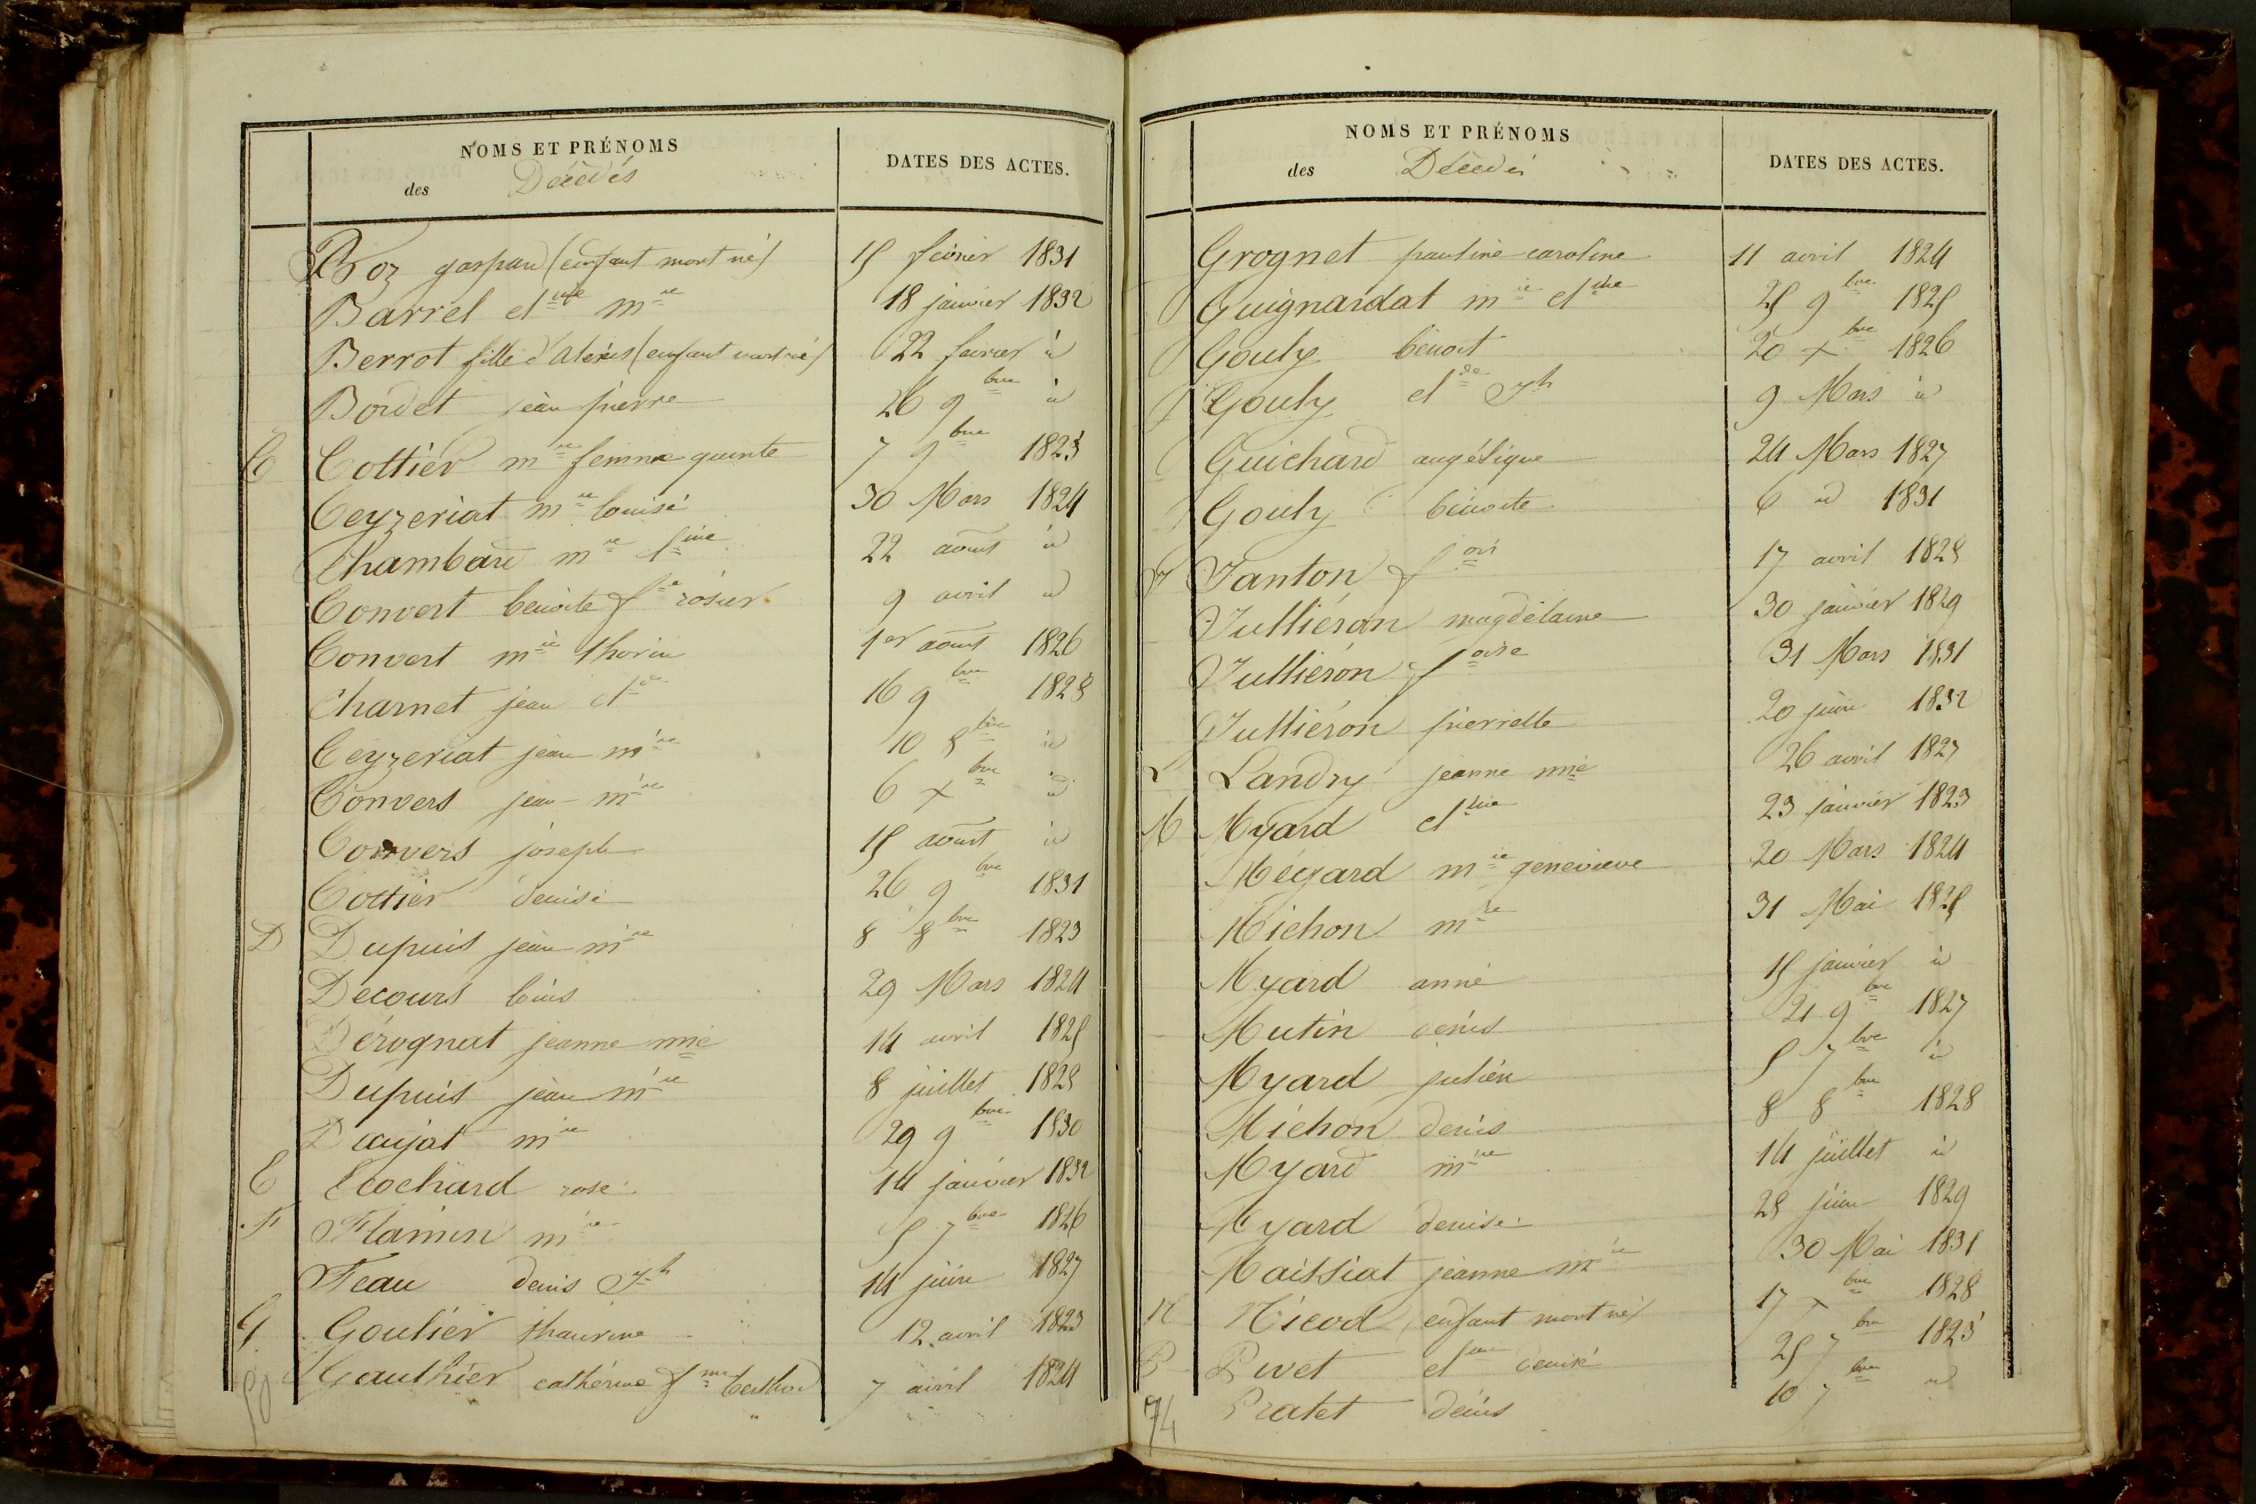 NOMS ET PRÉNOMS
des Décédés
DATES DES ACTES.
Broz gaspard (enfant mort né) 15 février 1831
Barrel cl.ine m.ie 18 janvier 1832
Berrot fille d'Alexis (enfant mort né) 22 février id
Bordet jean pierre 26 9bre id
C Cottier m.ie femme quinte 7 9bre 1823
Ceyzeriat m.ie louise 30 Mars 1824
Chambard m.ie f.ine 22 août id
Convert benoite f.e rosier 9 avril id
Convert m.ie thorin 1er août 1826
Charnet jean cl.de 16 9bre 1828
Ceyzeriat jean m.ie 10 8bre id
Convers jean m.ie 6 Xbre id
Convers joseph 15 août id
Cottier denise 26 9bre 1831
D Dupuis jean m.ie 8 8bre 1823
Decours louis 29 Mars 1824
Dérognat jeanne mie 14 avril 1825
Dupuis jean m.ie 8 juillet 1828
Ducujat m.ie 29 9bre 1830
E Ecochard rose 14 janvier 1832
F Flamin m.ie 5 7bre 1826
Feau denis Jh 14 juin 1827
G Goulier thaurine 12 avril 1823
Gauthier cathérine f.me berthod 7 avril 1824
50
NOMS ET PRÉNOMS
des Décédés
DATES DES ACTES.
Grognet pauline caroline 11 avril 1824
Guignardat m.ie cl.ine 25 9bre 1825
Gouly benoit 20 Xbre 1826
Gouly cl.de Jh 9 Mars id
Guichard angélique 24 Mars 1827
Gouly benoite 6 id 1831
J Janton f.ois 17 avril 1828
Julliéron magdelaine 30 janvier 1829
Julliéron f.oise 31 Mars 1831
Jullieron pierrette 20 juin 1832
L Landry jeanne mie 26 avril 1827
M Myard cl.ine 23 janvier 1823
Mégard m.ie genevieve 20 Mars 1824
Michon m.ie 31 Mai 1825
Myard anne 15 janvier id
Mutin denis 21 9bre 1827
Myard julien 5 7bre id
Michon denis 8 8bre 1828
Myard m.ie 14 juillet id
Myard denise 28 juin 1829
Maissiat jeanne m.ie 30 Mai 1831
N Nicod (enfant mort né) 17 Xbre 1828
P Pivet cl.ine denise 25 7bre 1823
Pratet denis 10 7bre id
74